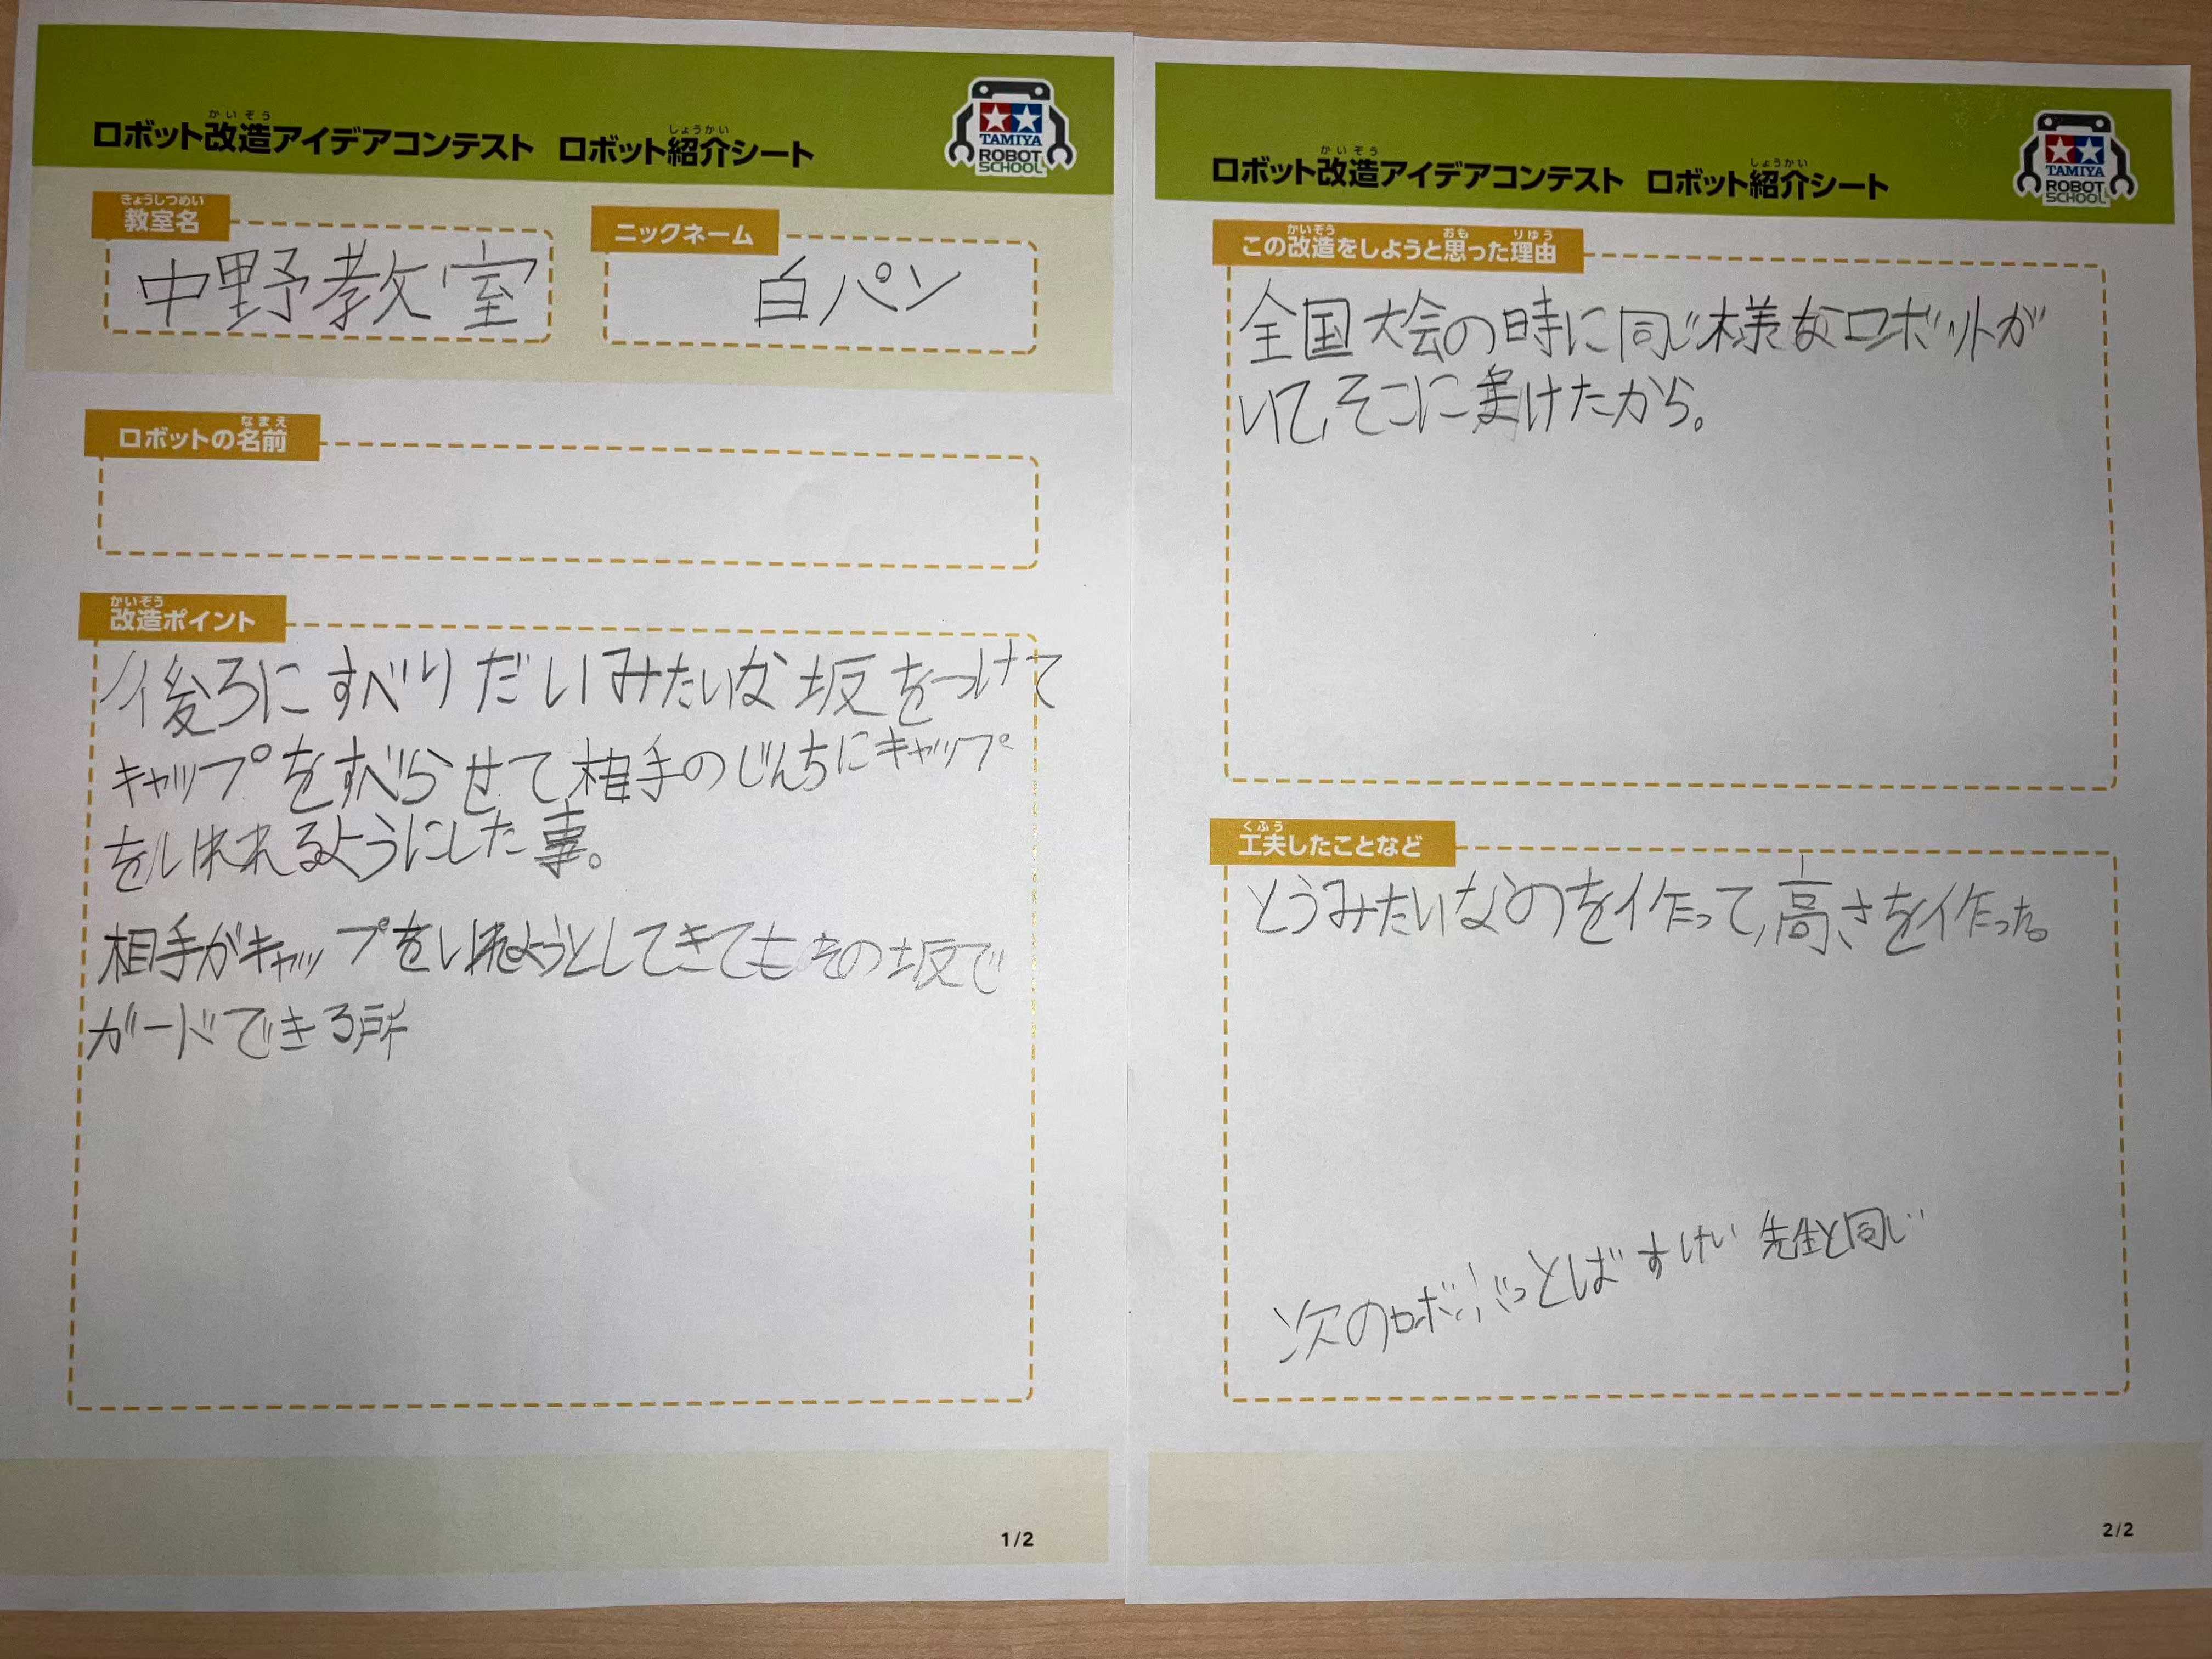 かいぞう しょうかい
ロボット改造アイデアコンテスト ロボット紹介シート
TAMIYA
ROBOT
SCHOOL
きょうしつめい
教室名
中野教室
ニックネーム
白パン
なまえ
ロボットの名前
かいぞう
改造ポイント
後ろにすべりだいみたいな坂をつけて
キャップをすべらせて相手のじんちにキャップ
をいれれるようにした事。
相手がキャップをいれようとしてきてもその坂で
ガードできる所
1/2
かいぞう しょうかい
ロボット改造アイデアコンテスト ロボット紹介シート
TAMIYA
ROBOT
SCHOOL
かいぞう おも りゆう
この改造をしようと思った理由
全国大会の時に同じ様なロボットが
いて、そこに負けたから。
くふう
工夫したことなど
とうみたいなのを作って、高さを作った。
次のロボ ぶっとばすけい 先生と同じ
2/2